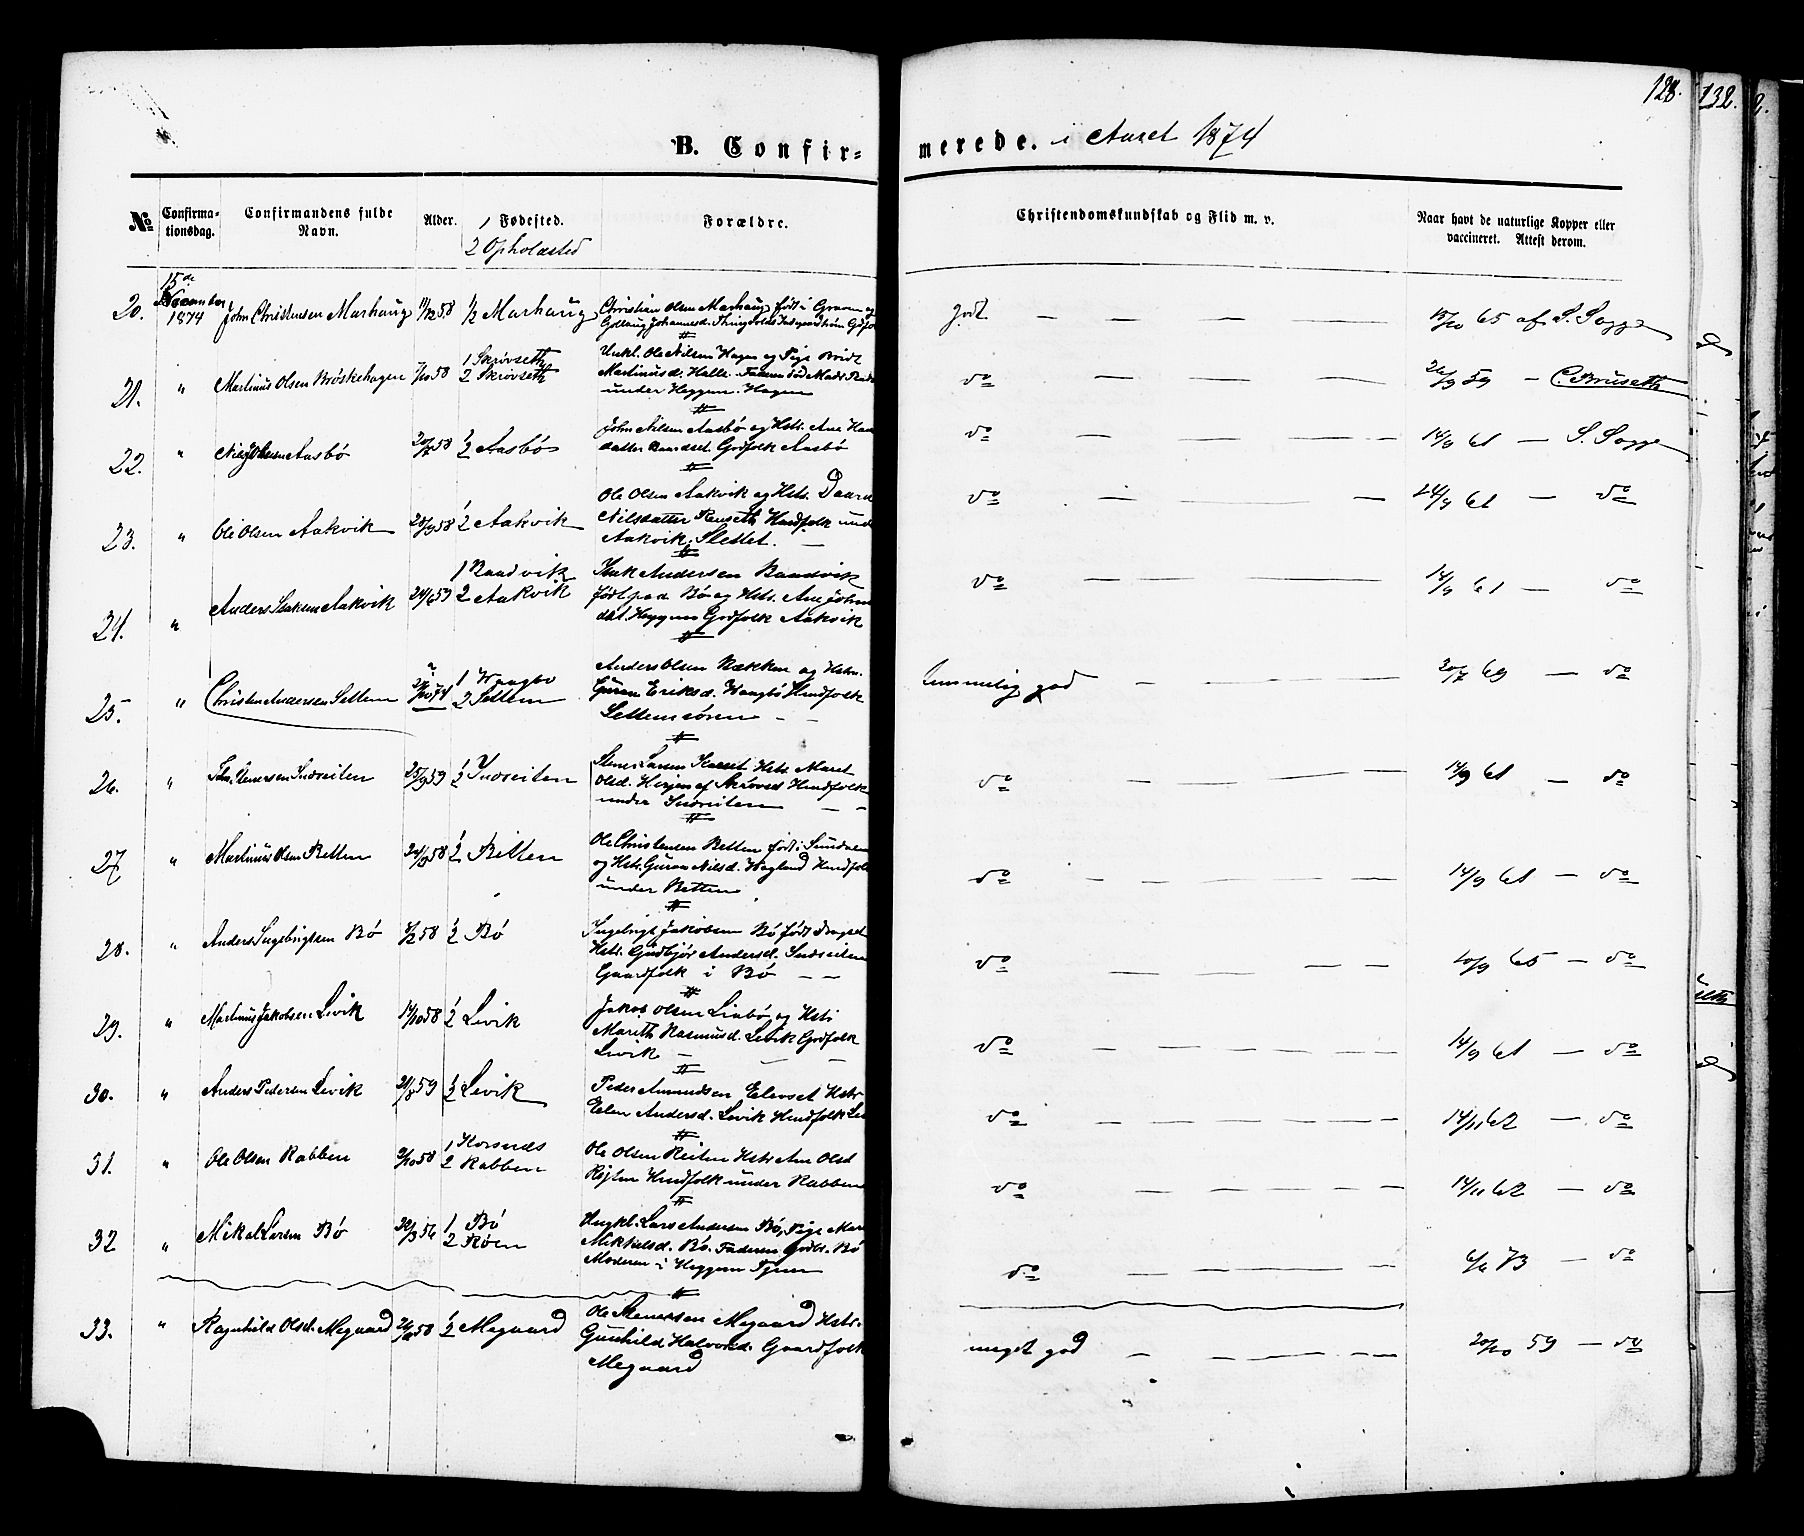 128.
132.
B. Confirmerede. i Aaret 1874
No
Confirmationsdag.
Confirmandens fulde Navn.
Alder.
1 Fødested.
2 Opholdsted
Forældre.
Christendomskundskab og Flid m. v.
Naar havt de naturlige Kopper eller vaccineret. Attest derom.
20. 15de November 1874 John Christensen Marhaug 11/12 58 1/2 Marhaug
Christian Olsen Marhaug født i Gravem og
Johannesd.
godt — — — 15/10 65 af S. Sogge
21. " Martinus Olsen Brøskehagen 7/10 58 1 Skrøvseth 2 Skrøvseth
Uekt. Ole Nilsen Hagen og Pige Bridt
Martinusd. Halle. Faderen
under Heggem. Hagen
do — — — 26/9 59 — C. Bruseth
22. " Nils Johnsen Aasbø 20/7 58 1/2 Aasbø
John Nilsen Aasbø og Hstr. Ane
datter Baardset Gdfolk Aasbø
do — — — 14/9 61 — S. Sogge
23. " Ole Olsen Aakvik 28/9 58 1/2 Aakvik
Ole Olsen Aakvik og Hstr.
Nilsdatter Renseth Husfolk und
Aakvik. Slettet. —
do — — — 24/9 61 — do
24. " Anders Isaksen Aakvik 24/6 59 1 Baadvik 2 Aakvik
Isak Andersen Baadvik
født paa Bø og Hstr. Ane John
dat. Heggem Gdfolk Aakvik
do — — — 14/9 61 — do
25. " Christen Andersen Settem 1 Waagbø 2 Settem
Anders Olsen Bækken og Hstr.
Guren Eriksd. Waagbø Husfolk
Settemsøren — —
temmelig god — — — 20/7 69 — do
26. " Stenersen Indreiten 25/9 59 1/2 Indreiten
Stener Larsen Hstr. Maret
Olsd. af Husfolk
under Indreiten — —
do — — — 14/9 61 — do
27 " Martinus Olsen Betten 24/9 58 1/2 Betten
Ole Christensen Betten født i Sundalen
og Hstr. Guren Nilsd. Husfolk
under Betten
do — — — 14/9 61 — do
28. " Anders Ingebrigtsen Bø 7/12 58 1/2 Bø
Ingebrigt Jakobsen Bø født
Hstr. Gudbjør Andersd. Indreiten
Gaardfolk i Bø — —
do — — — 20/9 65 — do
29. " Martinus Jakobsen Levik 14/10 58 1/2 Levik
Jakob Olsen Liabø og Hstr
Mareth Rasmusd. Levik Gdfolk
Levik — — —
do — — — 14/9 61 — do
30. " Anders Pedersen Levik 21/8 59 1/2 Levik
Peder Amundsen Elevset Hstr
Elen Andersd. Levik Husfolk
do — — — 14/11 62 — do
31. " Ole Olsen Rabben 2/10 58 1 Korsnæs 2 Rabben
Ole Olsen Reiten Hstr Ane Olsd
Husfolk under Rabben
do — — — 14/11 62 — do
32 " Mikal Larsen Bø 1 Bø 2 Røen
Uegkt. Lars Andersen Bø, Pige
Mikkelsd. Bø. Faderen Gdbr. Bø
Moderen i Heggem
do — — — 6/6 73 — do
33. " Ragnhild Olsd. Megaard 1/2 Megaard
Ole Stenersen Megaard Hstr.
Gunhild Halvorsd. Gaardfolk
Megaard
meget god — — — 20/10 59 — do